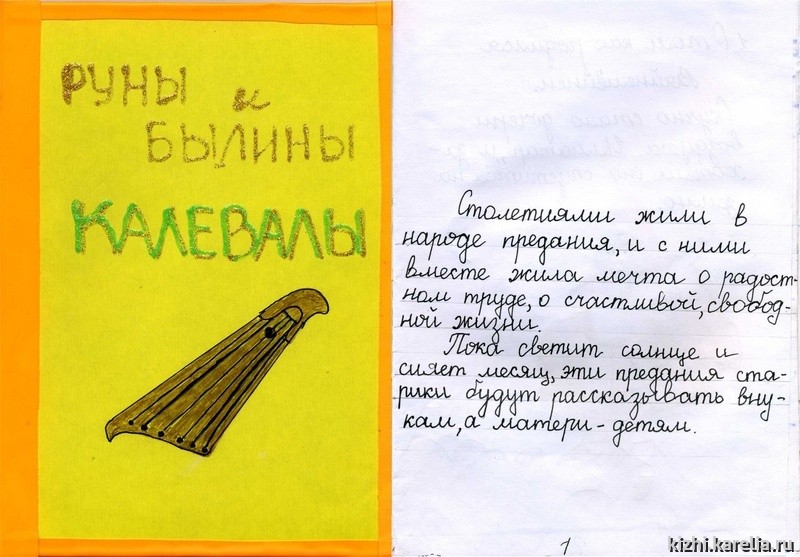 РУНЫ и
БЫЛИНЫ
КАЛЕВАЛЫ
Столетиями жили в
народе предания, и с ними
вместе жила мечта о радост-
ном труде, о счастливой, свобод-
ной жизни.
Пока светит солнце и
сияет месяц, эти предания ста-
рики будут рассказывать вну-
кам, а матери - детям.
1
kizhi.karelia.ru